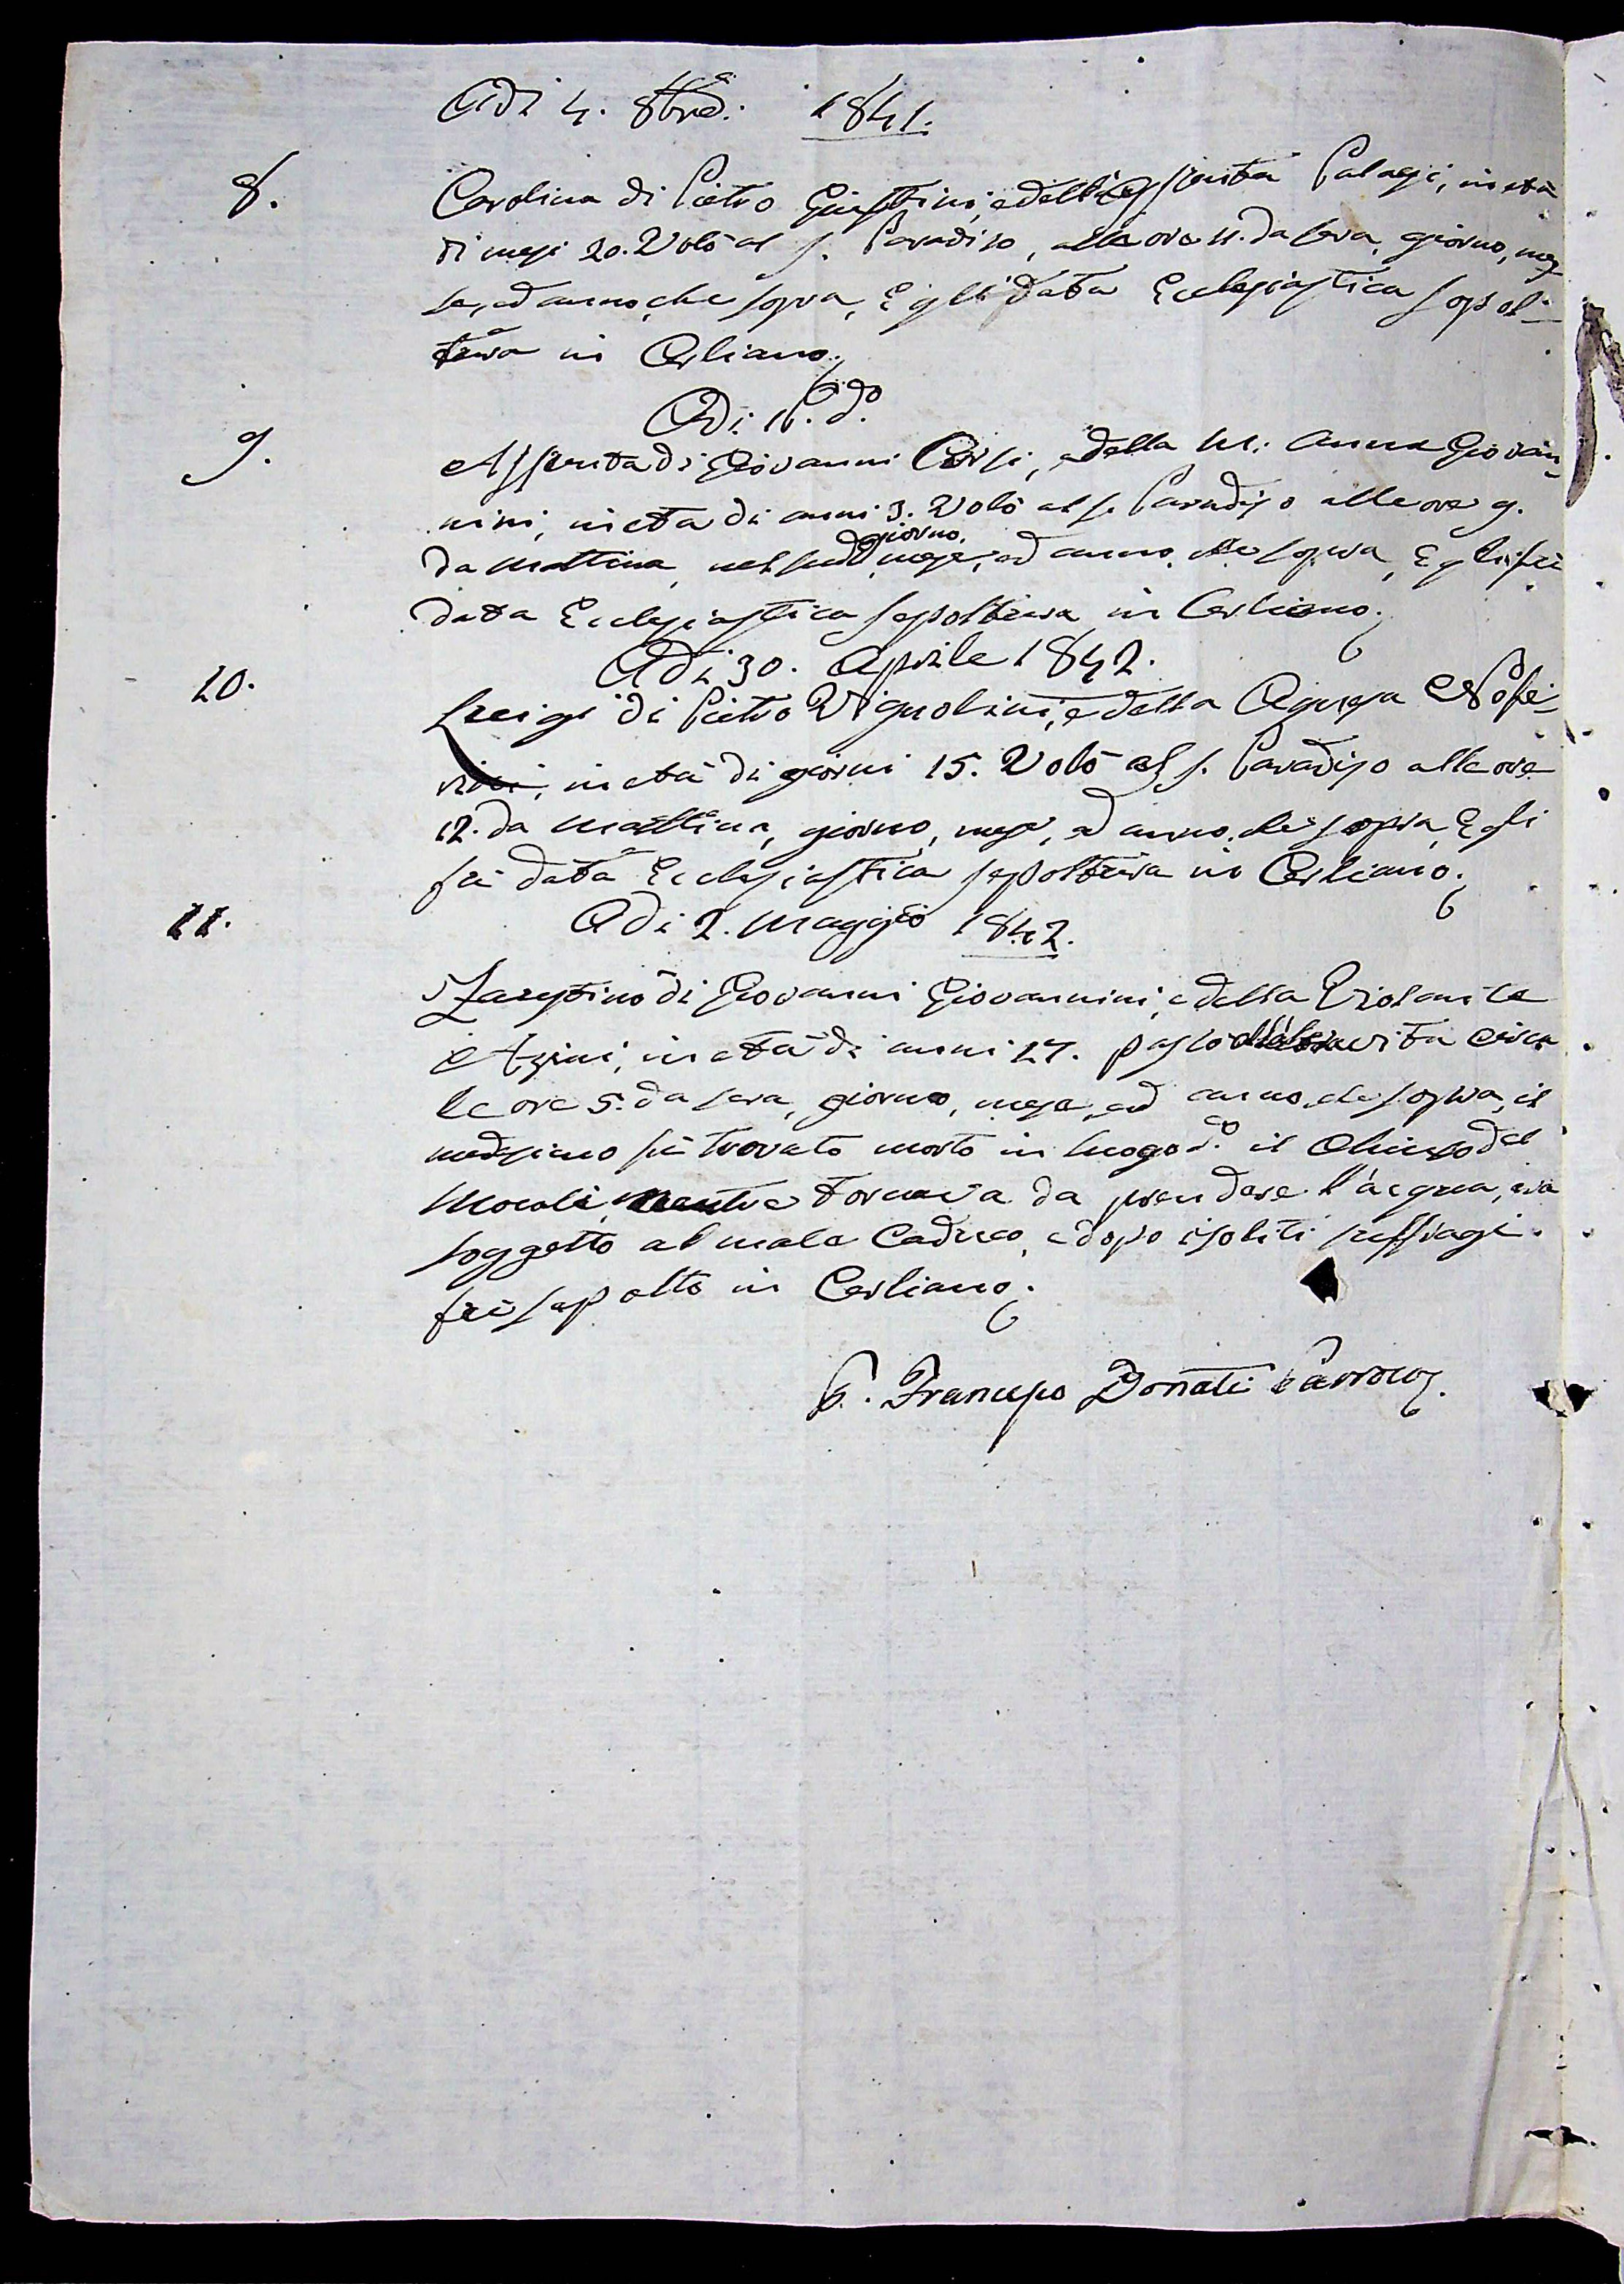 Adi 4. 8bre. 1841.
8. Carolina di Pietro Giustini, e dell'Assunta Palagi, in età
di mesi 20. Volò al s. Paradiso, alle ore 11. da sera, giorno, me-
se, ed anno, che sopra, E gli data Ecclesiastica sepol-
tura in Cerliano.
Adi 11. do.
9. Assunta di Giovanni Corsi, e della M. Anna Giovan-
nini, in età di anni 3. Volò al s. Paradiso alle ore 9.
da mattina, nel sudo giorno, mese, ed anno, che sopra, E gli fù
data Ecclesiastica sepoltura in Cerliano.
Adi 30. Aprile 1842.
10. Luigi di Pietro Vignolini, e della Agnesa Nofe-
rini, in età di giorni 15. Volò al s. Paradiso alle ore
12. da mattina, giorno, mese, ed anno, che sopra, E gli
fù data Ecclesiastica sepoltura in Cerliano.
11. Adi 2. Maggio 1842.
Faustino di Giovanni Giovannini, e della Violante
Azini, in età di anni 27. passò all'altra vita circa
le ore 5. da sera, giorno, mese, ed anno, che sopra, il
medesimo fù trovato morto in luogo do. il Chiuso del
Morali, mentre tornava da prendere l'acqua, era
soggetto al male Caduco, e dopo i soliti suffragi
fù sepolto in Cerliano.
P. Francesco Donati Parroco.